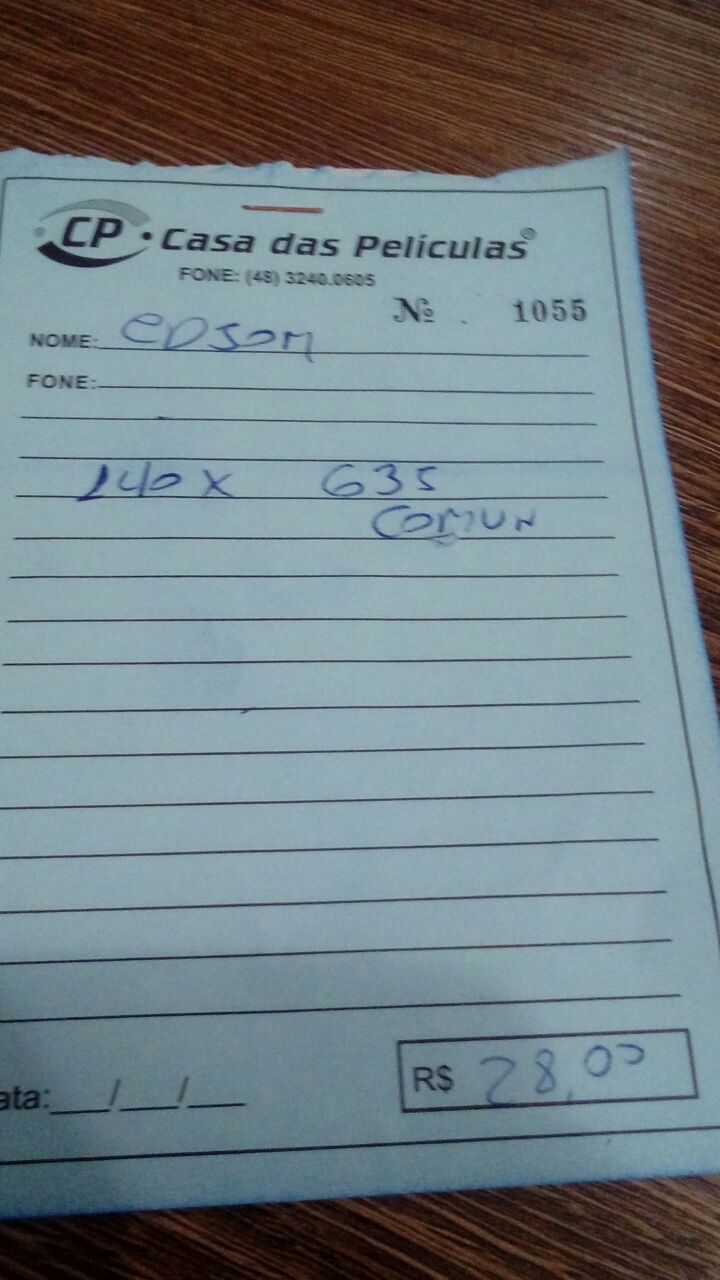 CP · Casa das Películas®
FONE: (48) 3240.0605
Nº 1055
NOME: EDSOM
FONE:
140 X 635
COMUN
ata: / /
R$ 28,00